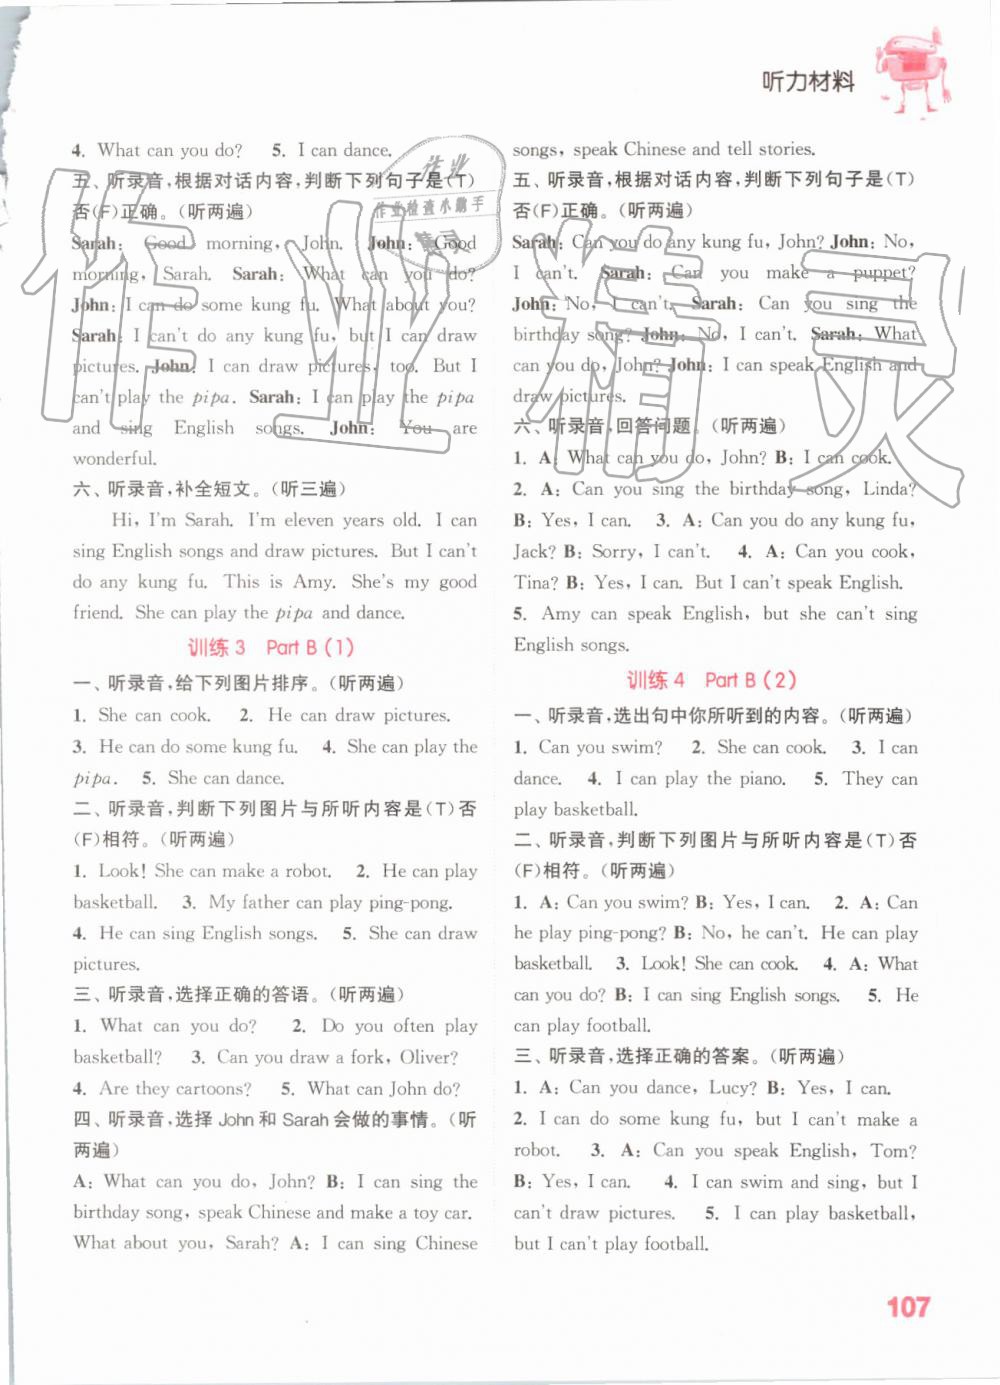 听力材料
4. What can you do? 5. I can dance.
五、听录音,根据对话内容,判断下列句子是(T)
否(F)正确。(听两遍)
Sarah: Good morning, John. John: Good
morning, Sarah. Sarah: What can you do?
John: I can do some kung fu. What about you?
Sarah: I can't do any kung fu, but I can draw
pictures. John: I can draw pictures, too. But I
can't play the pipa. Sarah: I can play the pipa
and sing English songs. John: You are
wonderful.
六、听录音,补全短文。(听三遍)
Hi, I'm Sarah. I'm eleven years old. I can
sing English songs and draw pictures. But I can't
do any kung fu. This is Amy. She's my good
friend. She can play the pipa and dance.
训练3 Part B (1)
一、听录音,给下列图片排序。(听两遍)
1. She can cook. 2. He can draw pictures.
3. He can do some kung fu. 4. She can play the
pipa. 5. She can dance.
二、听录音,判断下列图片与所听内容是(T)否
(F)相符。(听两遍)
1. Look! She can make a robot. 2. He can play
basketball. 3. My father can play ping-pong.
4. He can sing English songs. 5. She can draw
pictures.
三、听录音,选择正确的答语。(听两遍)
1. What can you do? 2. Do you often play
basketball? 3. Can you draw a fork, Oliver?
4. Are they cartoons? 5. What can John do?
四、听录音,选择John和Sarah会做的事情。(听
两遍)
A: What can you do, John? B: I can sing the
birthday song, speak Chinese and make a toy car.
What about you, Sarah? A: I can sing Chinese
songs, speak Chinese and tell stories.
五、听录音,根据对话内容,判断下列句子是(T)
否(F)正确。(听两遍)
Sarah: Can you do any kung fu, John? John: No,
I can't. Sarah: Can you make a puppet?
John: No, I can't. Sarah: Can you sing the
birthday song? John: No, I can't. Sarah: What
can you do, John? John: I can speak English and
draw pictures.
六、听录音,回答问题。(听两遍)
1. A: What can you do, John? B: I can cook.
2. A: Can you sing the birthday song, Linda?
B: Yes, I can. 3. A: Can you do any kung fu,
Jack? B: Sorry, I can't. 4. A: Can you cook,
Tina? B: Yes, I can. But I can't speak English.
5. Amy can speak English, but she can't sing
English songs.
训练4 Part B (2)
一、听录音,选出句中你所听到的内容。(听两遍)
1. Can you swim? 2. She can cook. 3. I can
dance. 4. I can play the piano. 5. They can
play basketball.
二、听录音,判断下列图片与所听内容是(T)否
(F)相符。(听两遍)
1. A: Can you swim? B: Yes, I can. 2. A: Can
he play ping-pong? B: No, he can't. He can play
basketball. 3. Look! She can cook. 4. A: What
can you do? B: I can sing English songs. 5. He
can play football.
三、听录音,选择正确的答案。(听两遍)
1. A: Can you dance, Lucy? B: Yes, I can.
2. I can do some kung fu, but I can't make a
robot. 3. A: Can you speak English, Tom?
B: Yes, I can. 4. I can swim and sing, but I
can't draw pictures. 5. I can play basketball,
but I can't play football.
107
作业精灵
作业
作业检查小助手
精灵